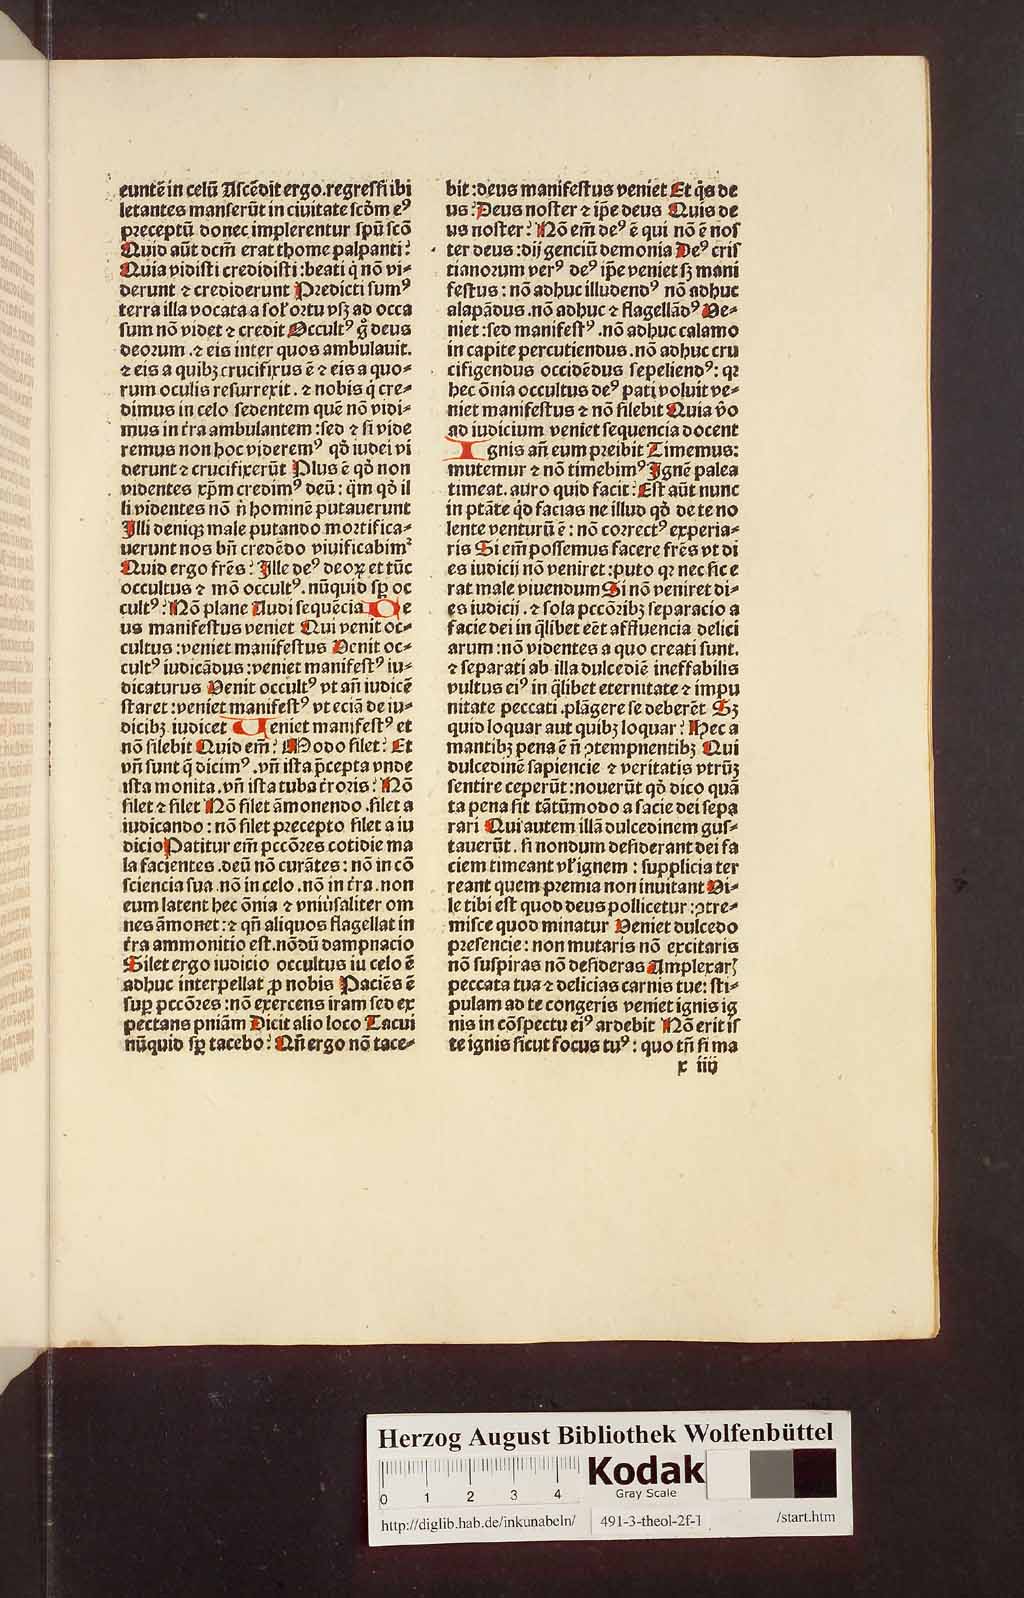 euntē in celū Ascēdit ergo.regressi ibi
letantes manserūt in ciuitate scōm eꝰ
preceptū donec implerentur spū scō
Quid aūt dcm̄ erat thome palpanti?
Quia vidisti credidisti :beati q̄ nō vi-
derunt ⁊ crediderunt Predicti sumꝰ
terra illa vocata a sol' ortu vsꝫ ad occa
sum nō videt ⁊ credit Occultꝰ gͦ deus
deorum .⁊ eis inter quos ambulauit.
⁊ eis a quibꝫ crucifixus ē ⁊ eis a quo-
rum oculis resurrexit . ⁊ nobis q̇ cre-
dimus in celo sedentem quē nō vidi-
mus in t̄ra ambulantem :sed ⁊ si vide
remus non hoc videremꝰ qd̄ iudei vi
derunt ⁊ crucifixerūt Plus ē qd̄ non
videntes xp̄m credimꝰ deū: q̄m qd̄ il
li videntes nō n̄ hominē putauerunt
Illi deniqꝫ male putando mortifica-
uerunt nos bn̄ credēdo viuificabimꝰ
Quid ergo frēs? Ille deꝰ deoꝝ et tūc
occultus ⁊ mō occultꝰ. nūquid sp̄ oc
cultꝰ? Nō plane Audi sequēcia De
us manifestus veniet Qui venit oc-
cultus :veniet manifestus Venit oc-
cultꝰ iudicādus :veniet manifestꝰ iu-
dicaturus Venit occultꝰ vt an̄ iudicē
staret :veniet manifestꝰ vt eciā de iu-
dicibꝫ iudicet Veniet manifestꝰ et
nō silebit Quid em̄? Modo silet? Et
vn̄ sunt q̄ dicimꝰ .vn̄ ista p̄cepta vnde
ista monita .vn̄ ista tuba t̄roris? Nō
silet ⁊ silet Nō silet āmonendo .silet a
iudicando : nō silet precepto silet a iu
dicio Patitur em̄ pccōres cotidie ma
la facientes .deū nō curātes: nō in cō
sciencia sua .nō in celo .nō in t̄ra .non
eum latent hec ōnia ⁊ vniūsaliter om
nes āmonet :⁊ qn̄ aliquos flagellat in
t̄ra ammonitio est.nōdū dampnacio
Silet ergo iudicio occultus iu celo ē
adhuc interpellat ꝓ nobis Paciēs ē
suꝑ pccōres :nō exercens iram sed ex
pectans pniām Dicit alio loco Tacui
nūquid sp̄ tacebo? Qn̄ ergo nō tace-
bit :deus manifestus veniet Et q̇s de
us? Deus noster ⁊ ip̄e deus Quis de
us noster? Nō em̄ deꝰ ē qui nō ē nos
ter deus :dij genciū demonia Deꝰ cris
tianorum verꝰ deꝰ ip̄e veniet sꝫ mani
festus : nō adhuc illudendꝰ nō adhuc
alapādus .nō adhuc ⁊ flagellādꝰ Ve-
niet :sed manifestꝰ .nō adhuc calamo
in capite percutiendus .nō adhuc cru
cifigendus occidēdus sepeliendꝰ: qꝛ
hec ōnia occultus deꝰ pati voluit ve-
niet manifestus ⁊ nō silebit Quia v̄o
ad iudicium veniet sequencia docent
Ignis an̄ eum preibit Timemus:
mutemur ⁊ nō timebimꝰ Ignē palea
timeat. auro quid facit? Est aūt nunc
in ptāte q̇d facias ne illud qd̄ de te no
lente venturū ē : nō correctꝰ experia-
ris Si em̄ possemus facere frēs vt di
es iudicij nō veniret :puto qꝛ nec sic e
rat male viuendum Si nō veniret di-
es iudicij . ⁊ sola pccōribꝫ separacio a
facie dei in q̄libet eēt affluencia delici
arum :nō videntes a quo creati sunt.
⁊ separati ab illa dulcediē ineffabilis
vultus eiꝰ in q̄libet eternitate ⁊ impu
nitate peccati .plāgere se deberēt Sꝫ
quid loquar aut quibꝫ loquar? Hec a
mantibꝫ pena ē n̄ ꝯtempnentibꝫ Qui
dulcedinē sapiencie ⁊ veritatis vtrūꝫ
sentire ceperūt :nouerūt qd̄ dico quā
ta pena sit tātūmodo a facie dei sepa
rari Qui autem illā dulcedinem gus-
tauerūt . si nondum desiderant dei fa
ciem timeant vl' ignem : supplicia ter
reant quem premia non inuitant Vi-
le tibi est quod deus pollicetur :ꝯtre-
misce quod minatur Veniet dulcedo
presencie : non mutaris nō excitaris
nō suspiras nō desideras Amplexarꝭ
peccata tua ⁊ delicias carnis tue: sti-
pulam ad te congeris veniet ignis ig
nis in cōspectu eiꝰ ardebit Nō erit is
te ignis sicut focus tuꝰ : quo tn̄ si ma
x iiij
Herzog August Bibliothek Wolfenbüttel
0 1 2 3 4
Kodak
Gray Scale
http://diglib.hab.de/inkunabeln/ 491-3-theol-2f-1 /start.htm